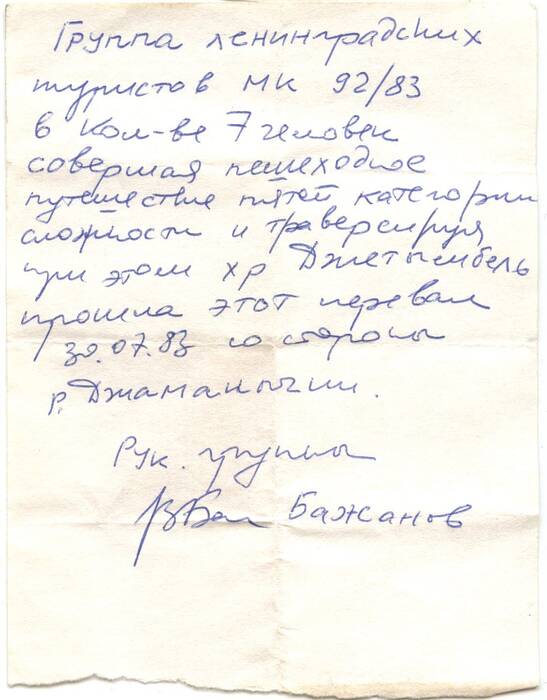 Группа ленинградских
туристов МК 92/83
в кол-ве 7 человек
совершая пешеходное
путешествие пятой категории
сложности и траверсируя
при этом хр Джетымбель
прошла этот перевал
30.07.83 со стороны
р.
Рук. группы
Бажанов